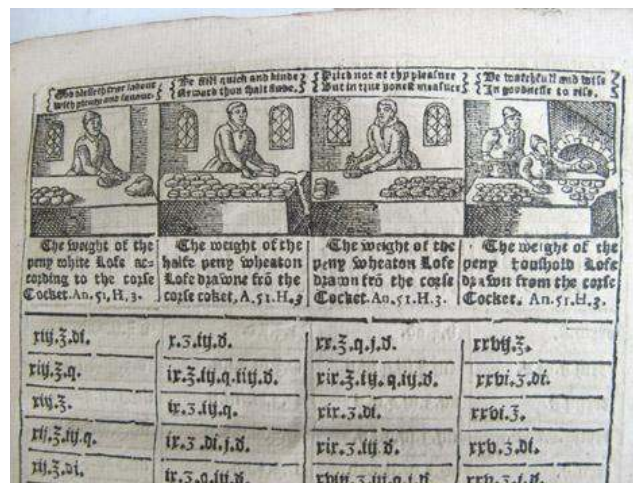 God blesseth true labour
with plenty and favour.
Be still quick and kinde
Reward thou shalt finde.
Prick not at thy pleasure
But in true honest measure
Be watchfull and wise
In goodnesse to rise.
The weight of the
peny white Lofe ac-
cording to the corse
Cocket. An. 51, H. 3.
The weight of the
halfe peny wheaton
Lofe drawne frō the
corse coket, A. 51. H. 3
The weight of the
peny wheaton Lofe
drawn frō the corse
Cocket. An. 51. H. 3.
The weight of the
peny houshold Lofe
drawn from the corse
Cocket. An. 51. H. 3.
xiij.℥.di.
x.℥.iij.d.
xx.℥.q.j.d.
xxvij.℥.
xiij.℥.q.
ix.℥.iij.q.iiij.d.
xix.℥.iij.q.iij.d.
xxvi.℥.di.
xiij.℥.
ix.℥.iij.q.
xix.℥.di.
xxvi.℥.
xij.℥.iij.q.
ix.℥.di.j.d.
xix.℥.iij.d.
xxv.℥.di.
xij.℥.di.
ix.℥.q.iij.d.